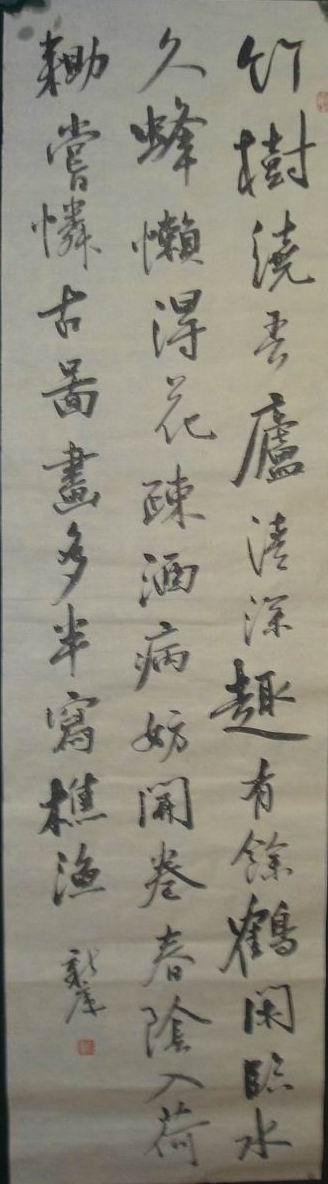 竹樹繞吾廬清深趣有餘鶴閑臨水
久蜂懶得花疎酒病妨開卷春陰入荷
耡嘗憐古啚畫多半寫樵漁